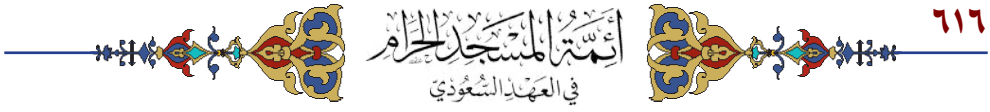 ٦١٦
أئمة المسجد الحرام
في العهد السعودي